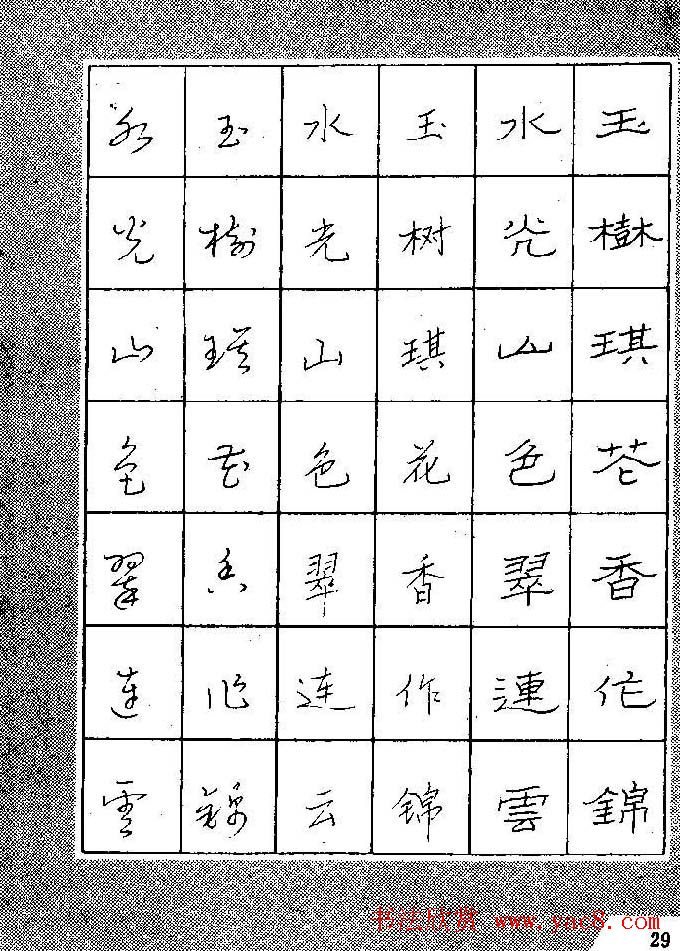 玉樹琪花香作錦
水光山色翠連雲
玉树琪花香作錦
水光山色翠连云
玉樹琪花香作錦
水光山色翠連雲
书法欣赏 www.yac8.com
29